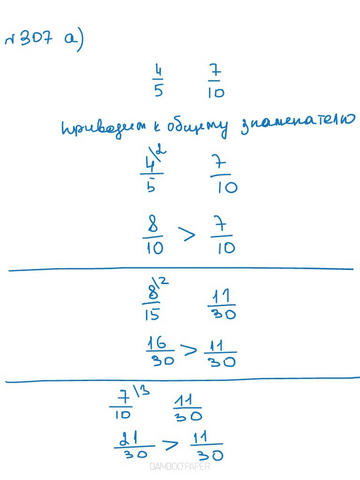 №307 а)
4/5 7/10
приводим к общему знаменателю
4\2/5 7/10
8/10 > 7/10
8\2/15 11/30
16/30 > 11/30
7\3/10 11/30
21/30 > 11/30
BAMBOO PAPER